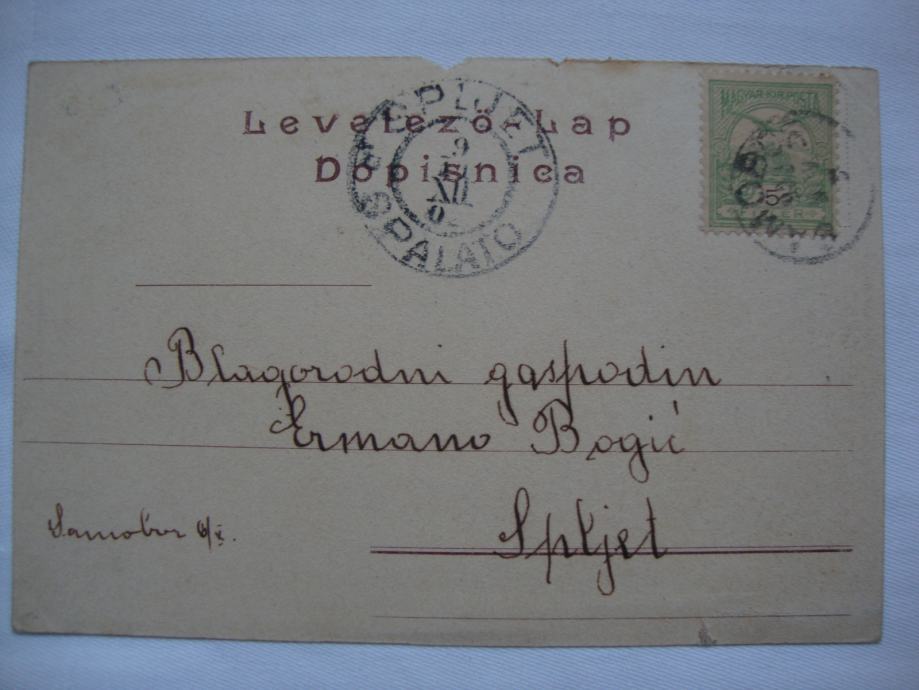 Levelező-Lap
Dopisnica
SPLJET
9
XII
SPALATO
MAGYAR KIR. POSTA
5
Blagorodni gospodin
Ermano Bogić
Spljet
Samobor